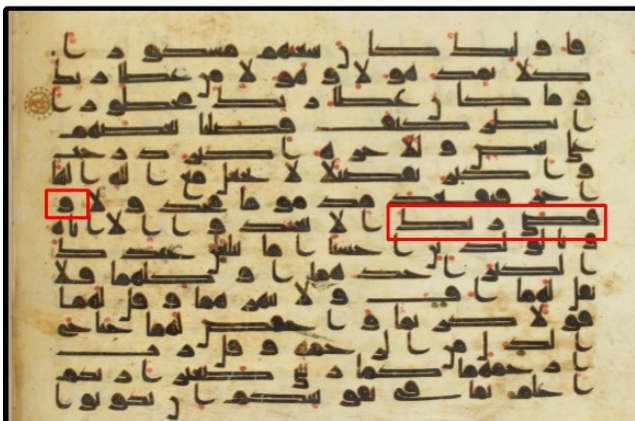 فاولئك كان سعيهم مشكورا
كلا نمد هولا وهولا من عطا ربك
وما كان عطا ربك محظورا
انظر كيف فضلنا بعضهم
على بعض وللاخره اكبر درجت
واكبر تفضيلا لا تجعل مع الله الها
اخر فتقعد مذموما مخذولا و
قضى ربك الا تعبدوا الا اياه
وبالولدين احسنا اما يبلغن عندك
الكبر احدهما او كلهما فلا
تقل لهما اف ولا تنهرهما وقل لهما
قولا كريما واخفض لهما جناح
الذل من الرحمه وقل رب
ارحمهما كما ربيني صغيرا ربكم
اعلم بما في نفوسكم ان تكونوا